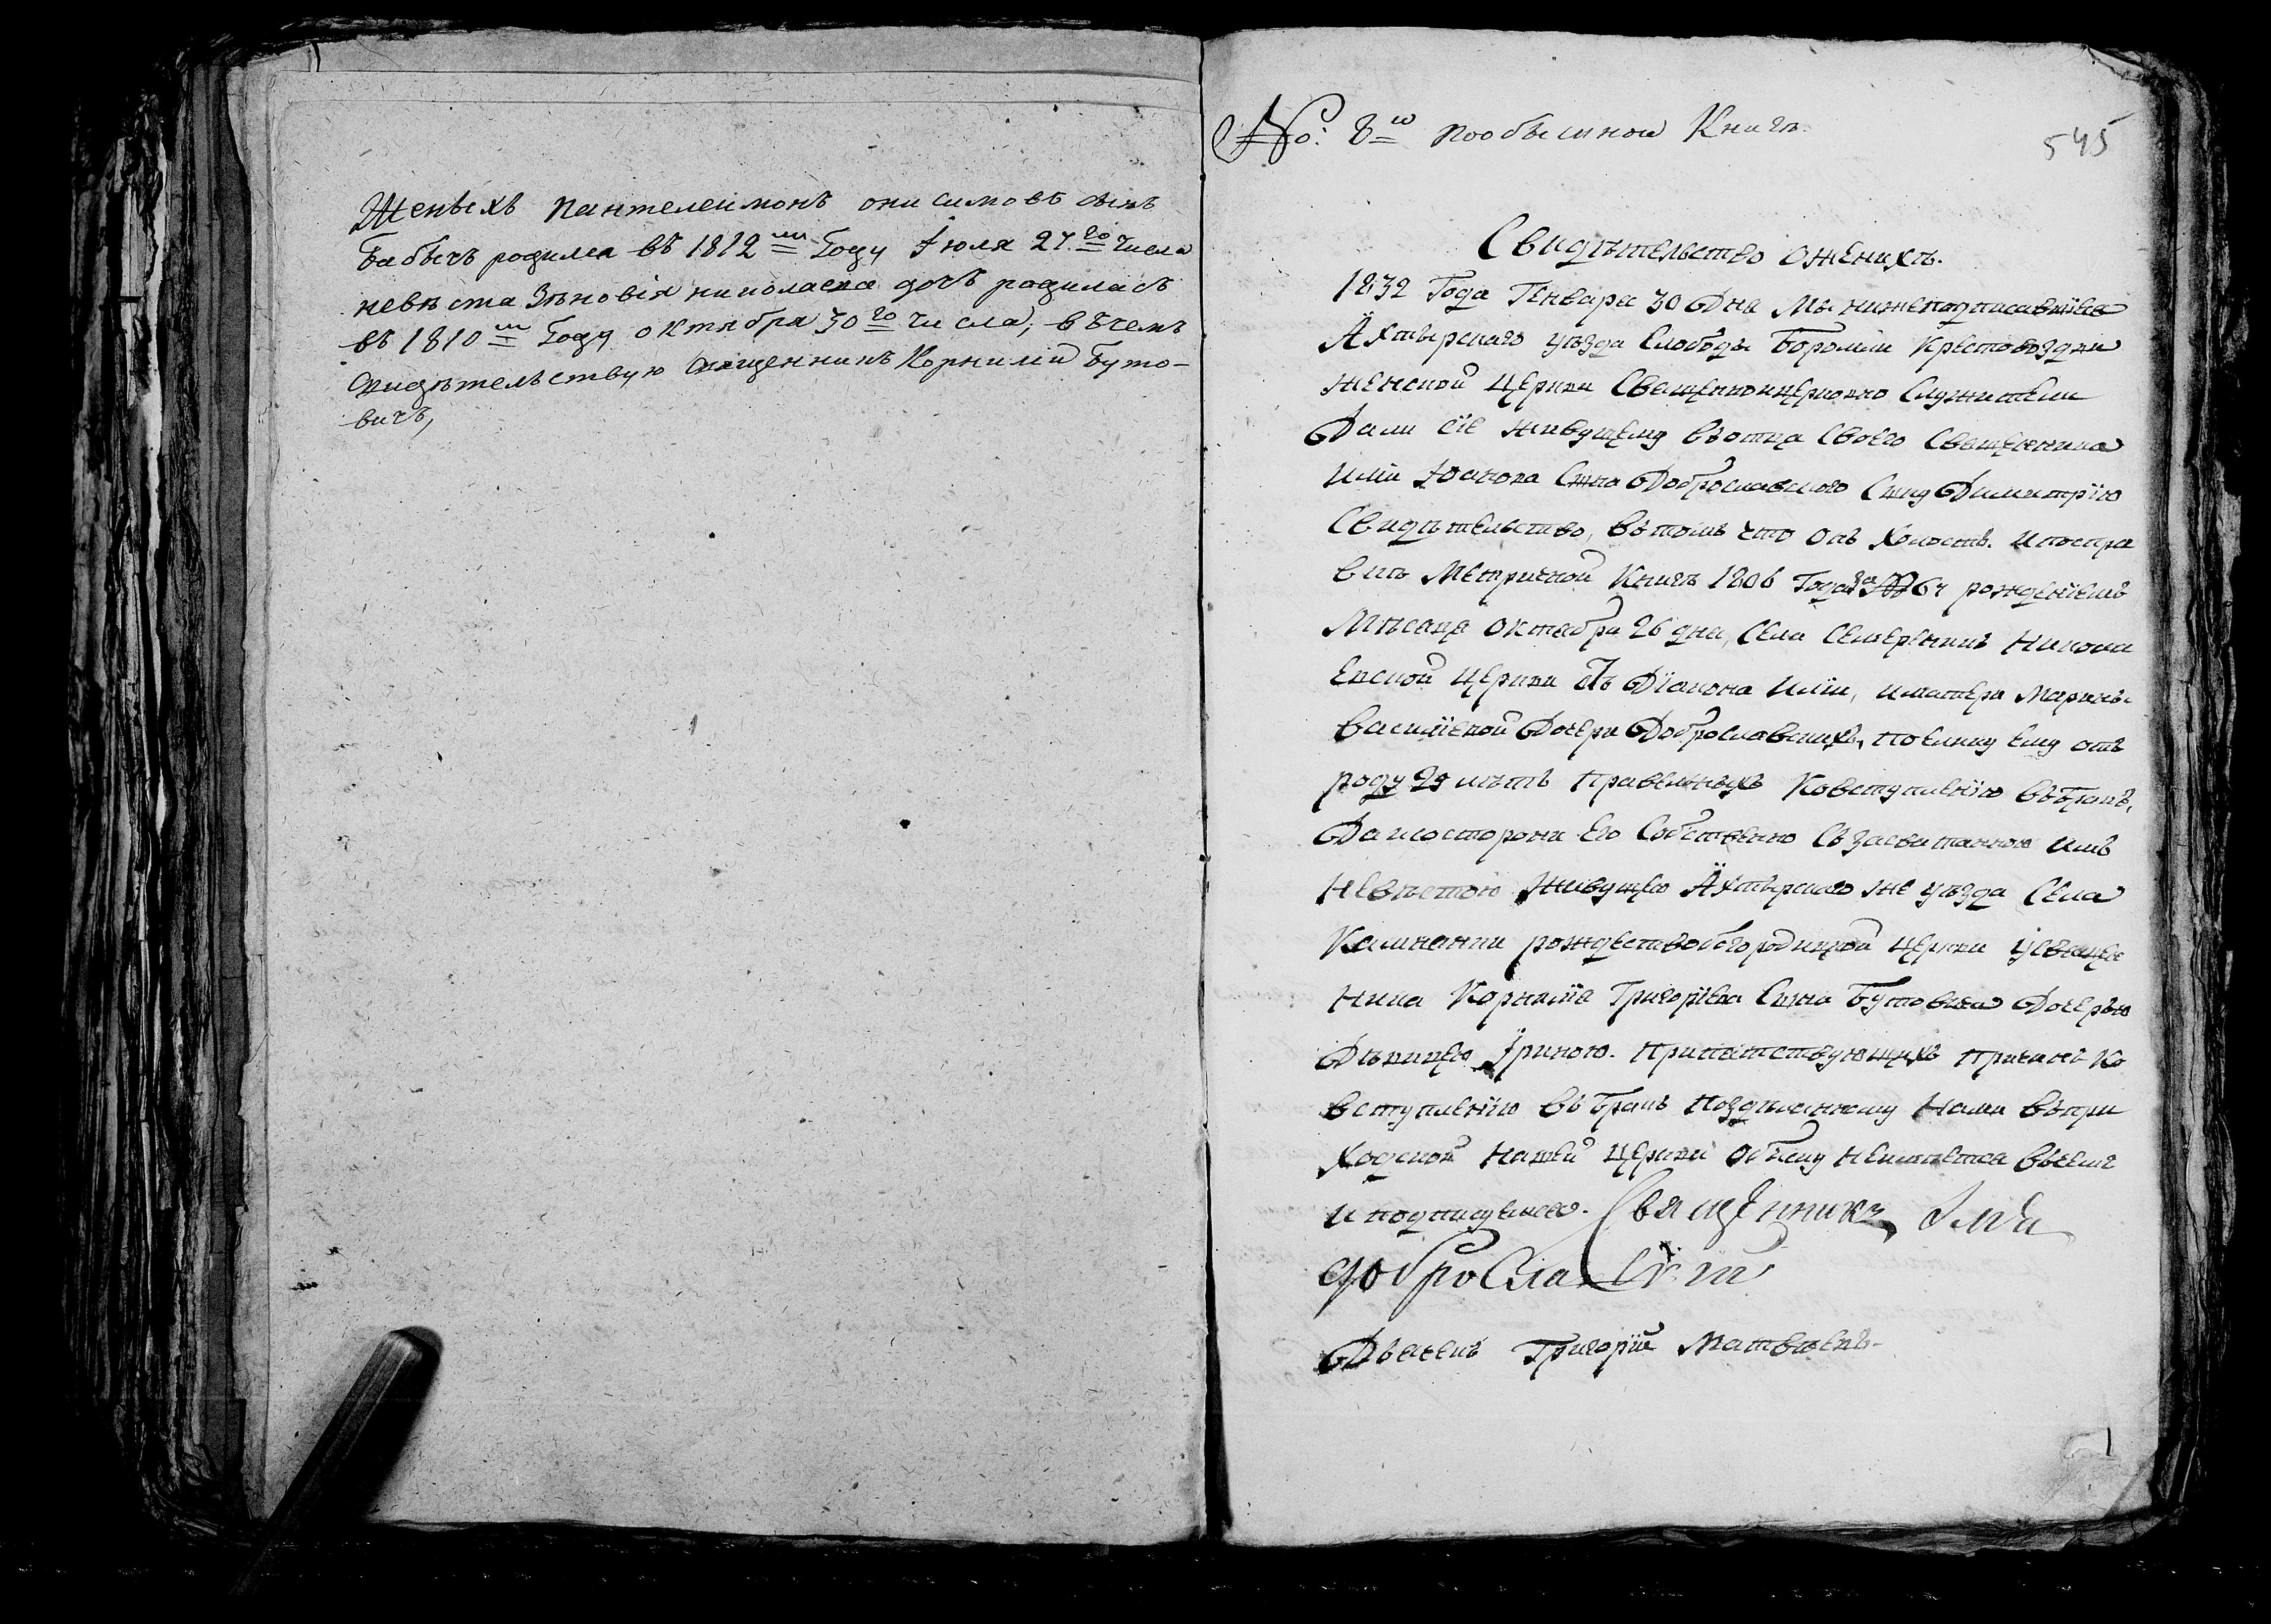 Женыхъ Пантелеймонъ онисимовъ сынъ
Бабычъ родился въ 1812 м Году Июля 27 го числа
невѣста Зѣновія николаева дочъ родиласъ
въ 1810 м Году октября 30 го числа, въ чемъ
Свидѣтельствую Священникъ Корнилій Буто-
вичъ,
No: 8 ю По обыскной Книгѣ.
545
Свидѣтельство о женихѣ.
1832 Года Генваря 30 Дня Мы нижеподписавшіеся
Ахтырскаго уѣзда Слободы Боромли Крестовоздви
женской Церкви Священноицерковно Служители
Дали сіе живущему въ отца Своего Священника
Иліи Іоанова Сына Доброславского Сыну Димитрію
Свидѣтельство, въ томъ что онъ холостъ. и по спра
вкѣ Метричной Книгѣ 1806 Года за № 64 рожденіемъ
Мѣсаца Октабра 26 дна, Села Семеренкы Никола
евской Церкви отъ Діакона Иліи, и матери Марины
Василіевой Дочери Доброславскихъ, поелику ему отъ
роду 25 лѣтъ правельныхъ Ко вступленію въ бракъ,
Да и со сторони Его Собственно Съ засватанною имъ
Невѣстою живущею Ахтырского же уѣзда Села
Каменки рождествобогородицкой церкви у Свяще
ника Корнилія Григоріева Сына Бутовича Дочерью
Дѣвицею Іриною. Препатствующихъ причинъ Ко
вступленію въ бракъ по здѣланному Нами въ при
ходской нашей Церкви обыску неимѣется въ чемъ
и подпишуемся. Священникъ Илія
доброславскій
Дьячекъ Григорій Матвѣевъ.